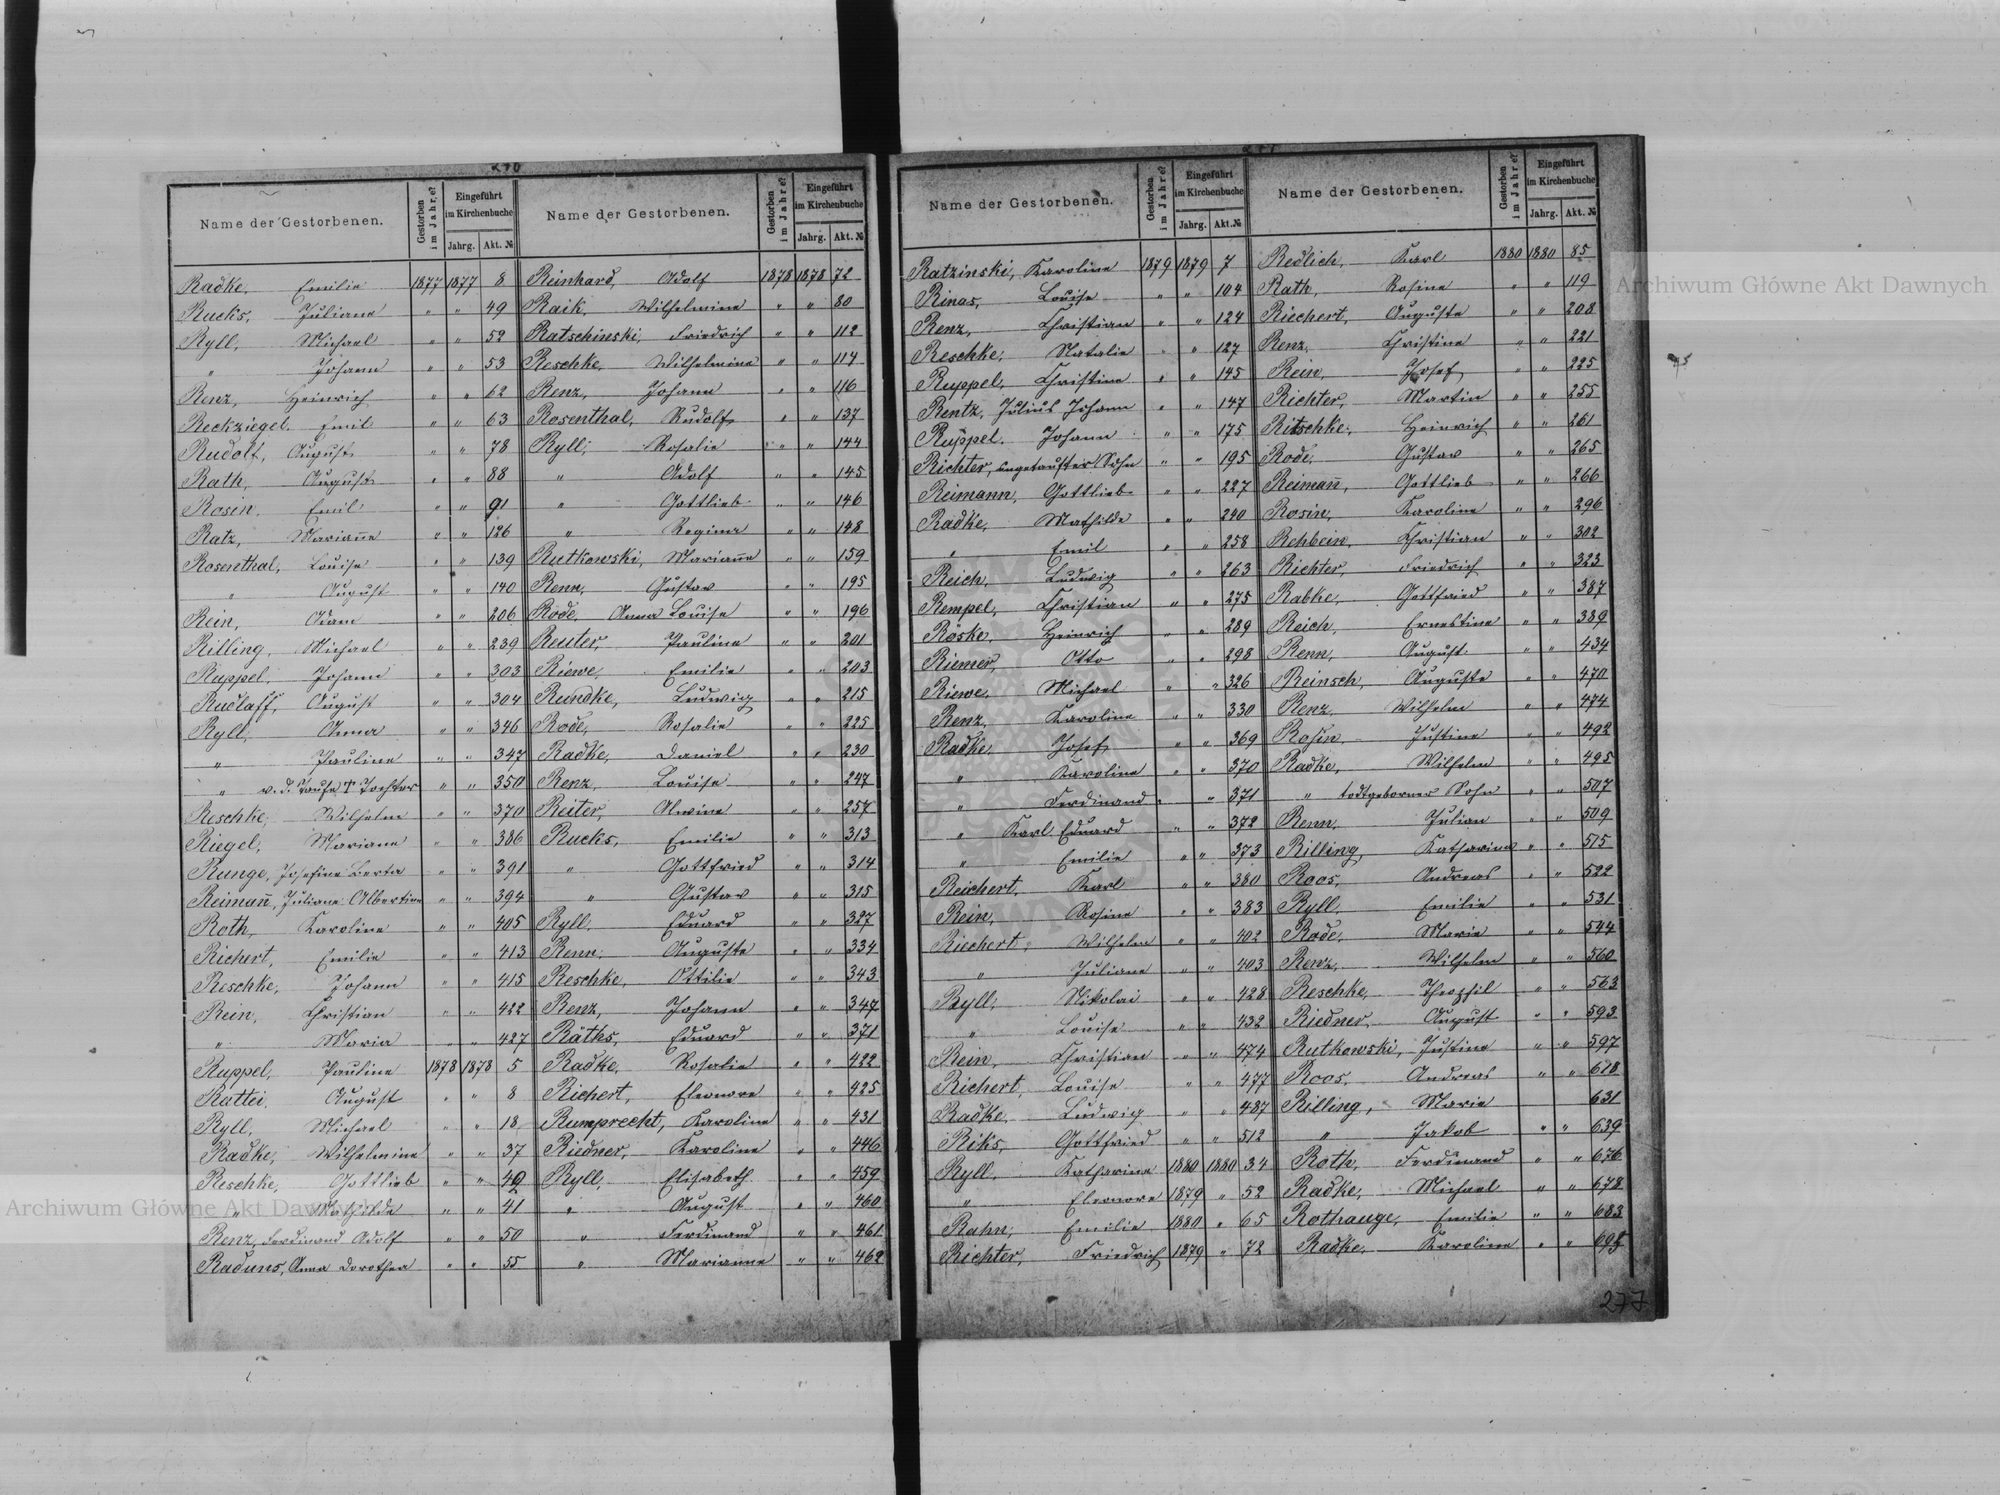 270
Name der Gestorbenen. Gestorben im Jahre? Eingeführt im Kirchenbuche Jahrg. Akt. №
Radke, Emilie 1877 1877 8
Rucks, Juliane " " 49
Ryll, Michael " " 52
" Johann " " 53
Renz, Heinrich " " 62
Reckziegel Emil " " 63
Rudolf, August " " 78
Rath, August " " 88
Rosin, Emil " " 91
Ratz, Marian̄e " " 126
Rosenthal, Louise " " 139
" August " " 140
Rein, Adam " " 206
Rilling, Michael " " 239
Ruppel, Johann " " 303
Rudlaff, August " " 304
Ryll, Anna " " 346
" Pauline " " 347
" v. d. Taufe † Tochter " " 350
Reschke, Wilhelm " " 370
Riegel, Mariane " " 386
Runge, Josefine Berta " " 391
Reiman̄, Juliane Albertine " " 394
Roth, Karoline " " 405
Richert, Emilie " " 413
Reschke, Johann " " 415
Rein, Christian " " 422
" Maria " " 427
Ruppel, Pauline 1878 1878 5
Rattei, August " " 8
Ryll, Michael " " 18
Radke, Wilhelmine " " 37
Reschke, Gottlieb " " 40
" Mathilde " " 41
Renz, Ferdinand Adolf " " 50
Raduns, Anna Dorothea " " 55
Name der Gestorbenen. Gestorben im Jahre? Eingeführt im Kirchenbuche Jahrg. Akt. №
Reinhard, Adolf 1878 1878 72
Raik, Wilhelmine " " 80
Ratschinski, Friedrich " " 112
Reschke, Wilhelmine " " 114
Renz, Johann " " 116
Rosenthal, Rudolf " " 137
Ryll, Rosalie " " 144
" Adolf " " 145
" Gottlieb " " 146
" Regina " " 148
Rutkowski, Marian̄e " " 159
Renn, Gustav " " 195
Rode, Anna Louise " " 196
Reuter, Pauline " " 201
Riewe, Emilie " " 203
Rundke, Ludwig " " 215
Rode, Rosalie " " 225
Radke, Daniel " " 230
Renz, Louise " " 247
Reiter, Alwine " " 257
Rucks, Emilie " " 313
" Gottfried " " 314
" Gustav " " 315
Ryll, Eduard " " 327
Renn, Auguste " " 334
Reschke, Ottilie " " 343
Renz, Johann " " 347
Räths, Eduard " " 371
Radke, Rosalie " " 422
Richert, Eleonore " " 425
Rumprecht, Karoline " " 431
Riedner, Karoline " " 446
Ryll, Elisabeth " " 459
" August " " 460
" Ferdinand " " 461
" Marianne " " 462
271
Name der Gestorbenen. Gestorben im Jahre? Eingeführt im Kirchenbuche Jahrg. Akt. №
Ratzinski, Karoline 1879 1879 7
Rinas, Louise " " 104
Renz, Christian " " 124
Reschke, Natalie " " 127
Ruppel, Christine " " 145
Rentz, Julius Johann " " 147
Ruppel, Johann " " 175
Richter, ungetaufter Sohn " " 195
Reimann, Gottlieb " " 227
Radke, Mathilde " " 240
" Emil " " 258
Reich, Ludwig " " 263
Rempel, Christian " " 275
Röske, Heinrich " " 289
Riemer, Otto " " 298
Riewe, Michael " " 326
Renz, Karoline " " 330
Radke, Josef " " 369
" Karoline " " 370
" Ferdinand " " 371
" Karl Eduard " " 372
" Emilie " " 373
Reichert, Karl " " 380
Rein, Rosine " " 383
Riechert, Wilhelm " " 402
" Juliane " " 403
Ryll, Nikolai " " 428
" Louise " " 432
Rein, Christian " " 474
Richert, Louise " " 477
Radke, Ludwig " " 487
Riks, Gottfried " " 512
Ryll, Katharine 1880 1880 34
" Eleonore 1879 " 52
Rahn, Emilie 1880 " 65
Richter, Friedrich 1879 " 72
Name der Gestorbenen. Gestorben im Jahre? Eingeführt im Kirchenbuche Jahrg. Akt. №
Redlich, Karl 1880 1880 85
Rath, Rosine " " 119
Riechert, Auguste " " 208
Renz, Christine " " 221
Rein, Josef " " 225
Richter, Martin " " 255
Ritschke, Heinrich " " 261
Rode, Gustav " " 265
Reiman̄, Gottlieb " " 266
Rosin, Karoline " " 296
Rehbein, Christian " " 302
Richter, Friedrich " " 323
Rabke, Gottfried " " 387
Reich, Ernestine " " 389
Renn, August " " 434
Reinsch, Auguste " " 470
Renz, Wilhelm " " 474
Rosin, Justine " " 492
Radke, Wilhelm " " 495
" todtgeborner Sohn " " 507
Renn, Julian " " 509
Rilling, Katharina " " 515
Roos, Andreas " " 522
Ryll, Emilie " " 531
Rode, Marie " " 544
Renz, Wilhelm " " 560
Reschke, Theophil " " 563
Riedner, August " " 593
Rutkowski, Justine " " 597
Roos, Andreas " " 628
Rilling, Marie 631
" Jakob " " 639
Roth, Ferdinand " " 676
Radke, Michael " " 678
Rothauge, Emilie " " 683
Radke, Karoline " "
277
Archiwum Główne Akt Dawnych
Archiwum Główne Akt Dawnych